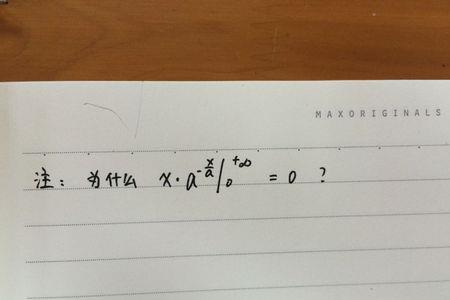 MAXORIGINALS
注: 为什么 x·a^{-\frac{x}{a}}|_0^{+∞} = 0 ?